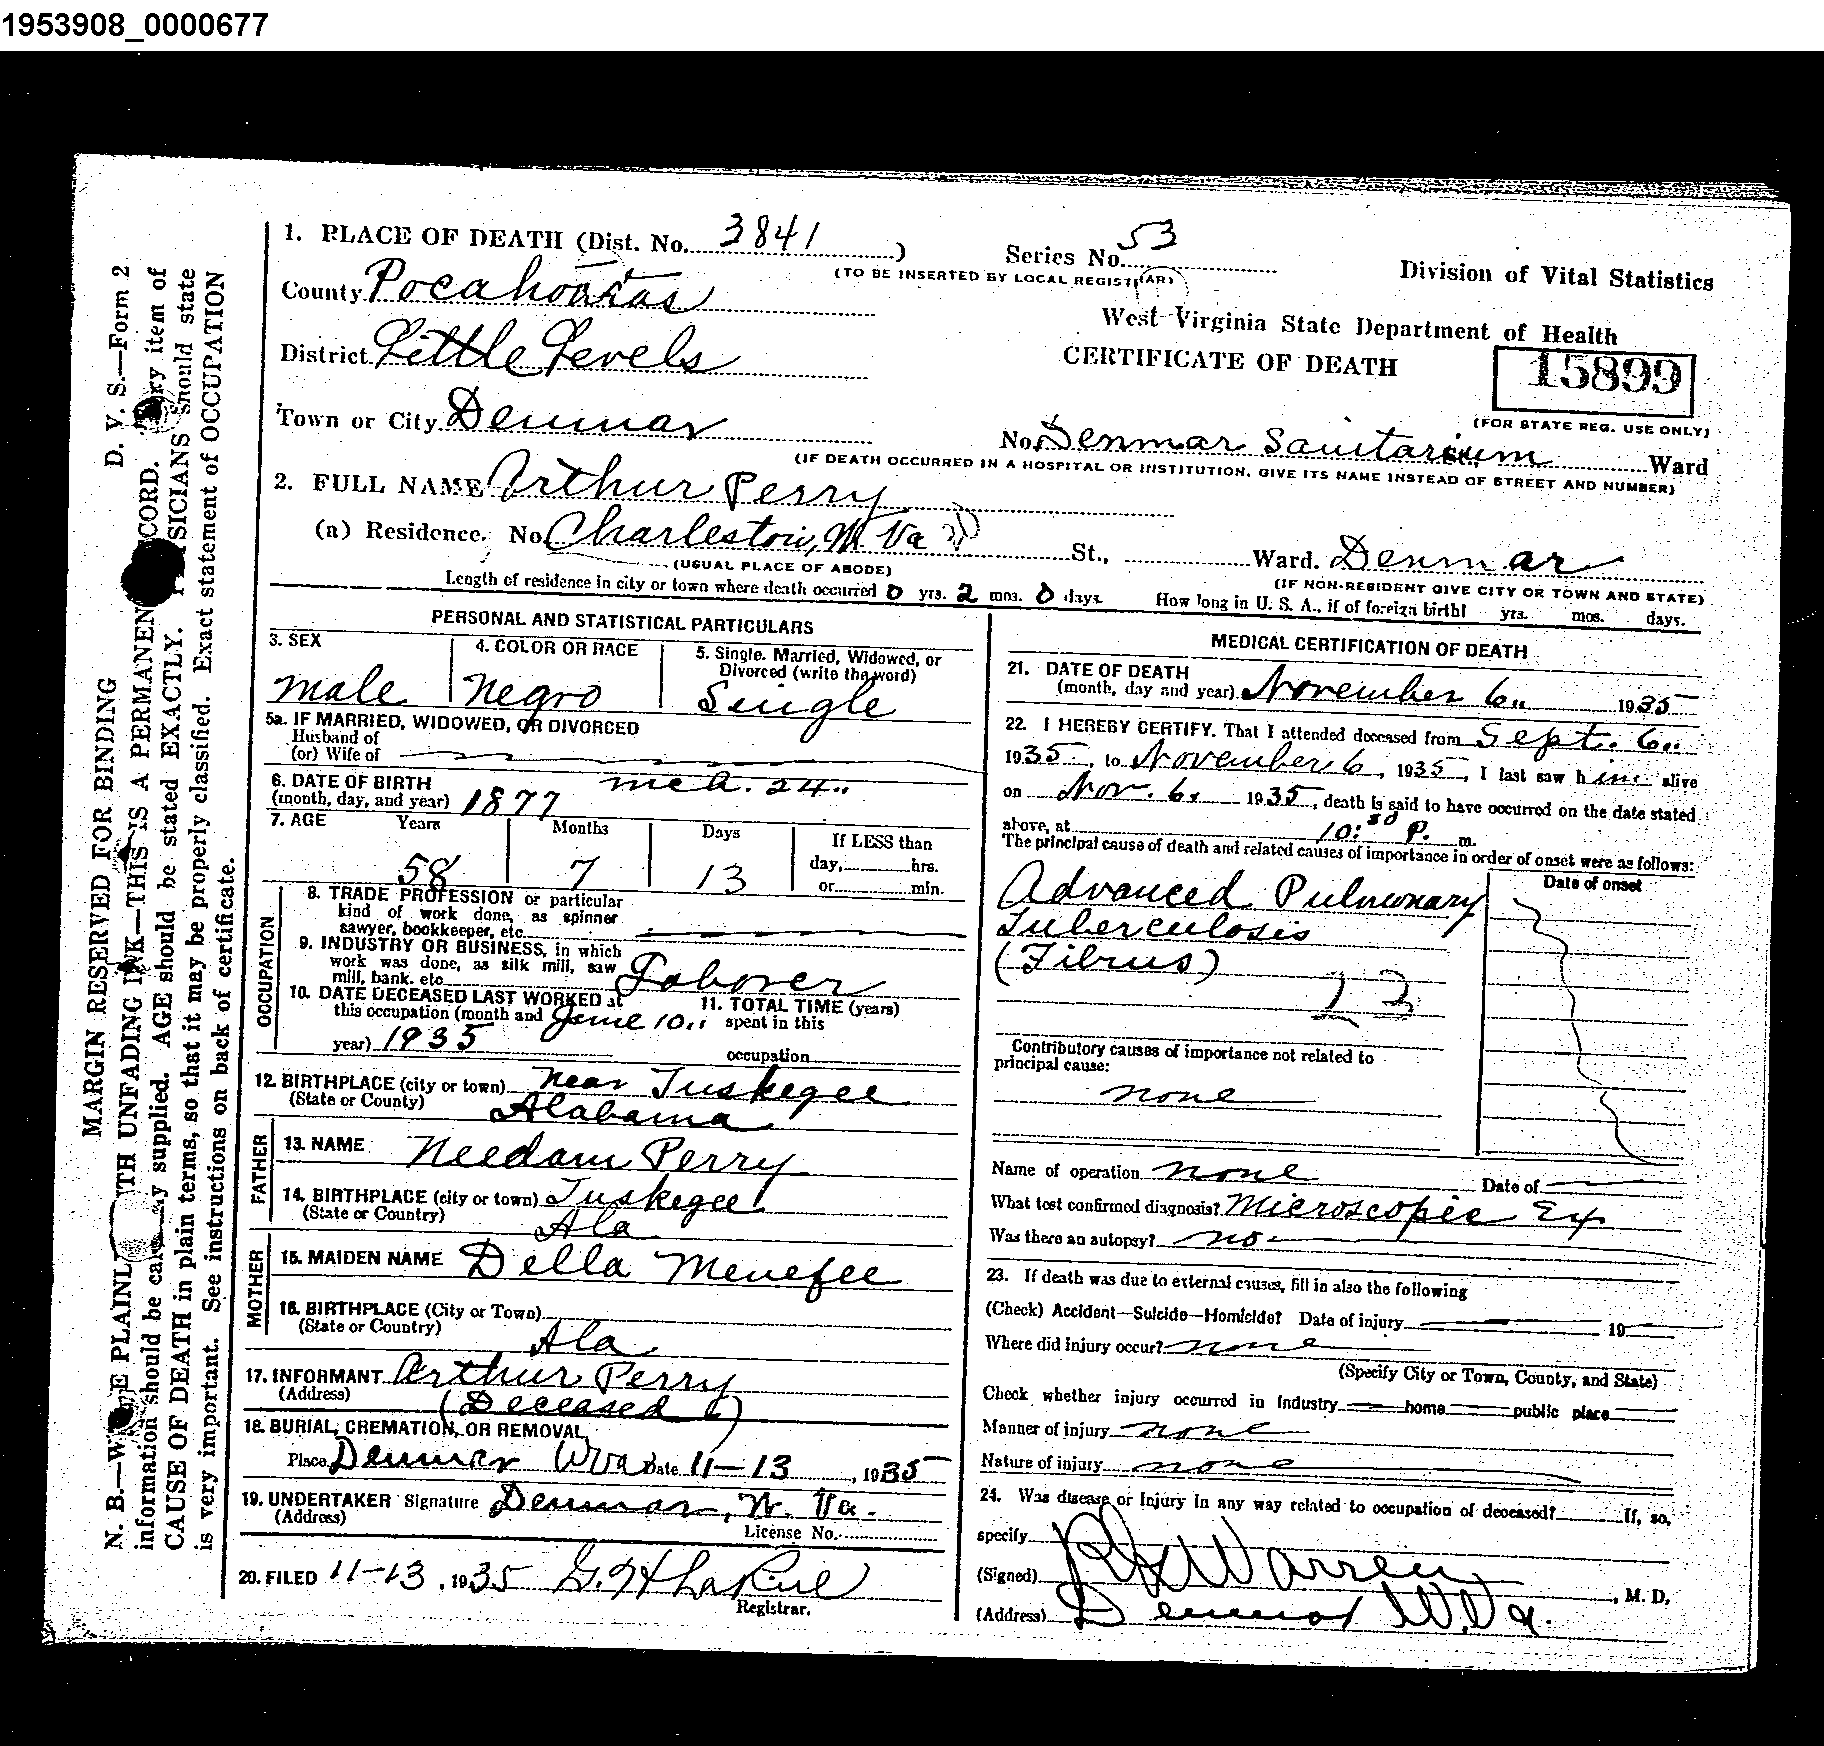 1953908_0000677
MARGIN RESERVED FOR BINDING D. V. S.—Form 2
N. B.—WRITE PLAINLY WITH UNFADING INK—THIS IS A PERMANENT RECORD. Every item of
information should be carefully supplied. AGE should be stated EXACTLY. PHYSICIANS should state
CAUSE OF DEATH in plain terms, so that it may be properly classified. Exact statement of OCCUPATION
is very important. See instructions on back of certificate.
1. PLACE OF DEATH (Dist. No. 3841)
Series No. 53
(TO BE INSERTED BY LOCAL REGISTRAR)
Division of Vital Statistics
County Pocahontas
West Virginia State Department of Health
District Little Levels
CERTIFICATE OF DEATH
15899
(FOR STATE REG. USE ONLY)
Town or City Denmar
No. Denmar Sanitarium Ward
(IF DEATH OCCURRED IN A HOSPITAL OR INSTITUTION, GIVE ITS NAME INSTEAD OF STREET AND NUMBER)
2. FULL NAME Arthur Perry
(a) Residence. No. Charleston, W. Va St., Ward. Denmar
(USUAL PLACE OF ABODE) (IF NON-RESIDENT GIVE CITY OR TOWN AND STATE)
Length of residence in city or town where death occurred 0 yrs. 2 mos. 0 days. How long in U. S. A., if of foreign birth? yrs. mos. days.
PERSONAL AND STATISTICAL PARTICULARS
3. SEX
male
4. COLOR OR RACE
negro
5. Single, Married, Widowed, or
Divorced (write the word)
Single
5a. IF MARRIED, WIDOWED, OR DIVORCED
Husband of
(or) Wife of
6. DATE OF BIRTH
(month, day, and year) 1877 mch. 24
7. AGE Years Months Days If LESS than
58 7 13 day, hrs.
or min.
OCCUPATION
8. TRADE PROFESSION or particular
kind of work done, as spinner
sawyer, bookkeeper, etc.
9. INDUSTRY OR BUSINESS, in which
work was done, as silk mill, saw
mill, bank, etc. Laborer
10. DATE DECEASED LAST WORKED at
this occupation (month and
year) June 10 1935
11. TOTAL TIME (years)
spent in this
occupation
12. BIRTHPLACE (city or town) Near Tuskegee
(State or County) Alabama
FATHER
13. NAME Needam Perry
14. BIRTHPLACE (city or town) Tuskegee
(State or Country) Ala
MOTHER
15. MAIDEN NAME Della Menefee
16. BIRTHPLACE (City or Town)
(State or Country) Ala
17. INFORMANT Arthur Perry
(Address) (Deceased)
18. BURIAL, CREMATION, OR REMOVAL
Place Denmar W Va Date 11-13, 1935
19. UNDERTAKER Signature Denmar, W. Va.
(Address)
License No.
20. FILED 11-13, 1935
Registrar.
MEDICAL CERTIFICATION OF DEATH
21. DATE OF DEATH
(month, day and year) November 6 1935
22. I HEREBY CERTIFY, That I attended deceased from Sept. 6
1935, to November 6, 1935, I last saw him alive
on Nov. 6, 1935, death is said to have occurred on the date stated
above, at 10:30 P. m.
The principal cause of death and related causes of importance in order of onset were as follows:
Date of onset
Advanced Pulmonary
Tuberculosis
(Fibrus)
23
Contributory causes of importance not related to
principal cause:
none
Name of operation none Date of
What test confirmed diagnosis? Microscopic Ex
Was there an autopsy? no
23. If death was due to external causes, fill in also the following
(Check) Accident—Suicide—Homicide? Date of injury 19
Where did injury occur? none
(Specify City or Town, County, and State)
Check whether injury occurred in Industry home public place
Manner of injury none
Nature of injury none
24. Was disease or Injury in any way related to occupation of deceased? If, so,
specify
(Signed) Warren, M. D.
(Address) Denmar W.Va.